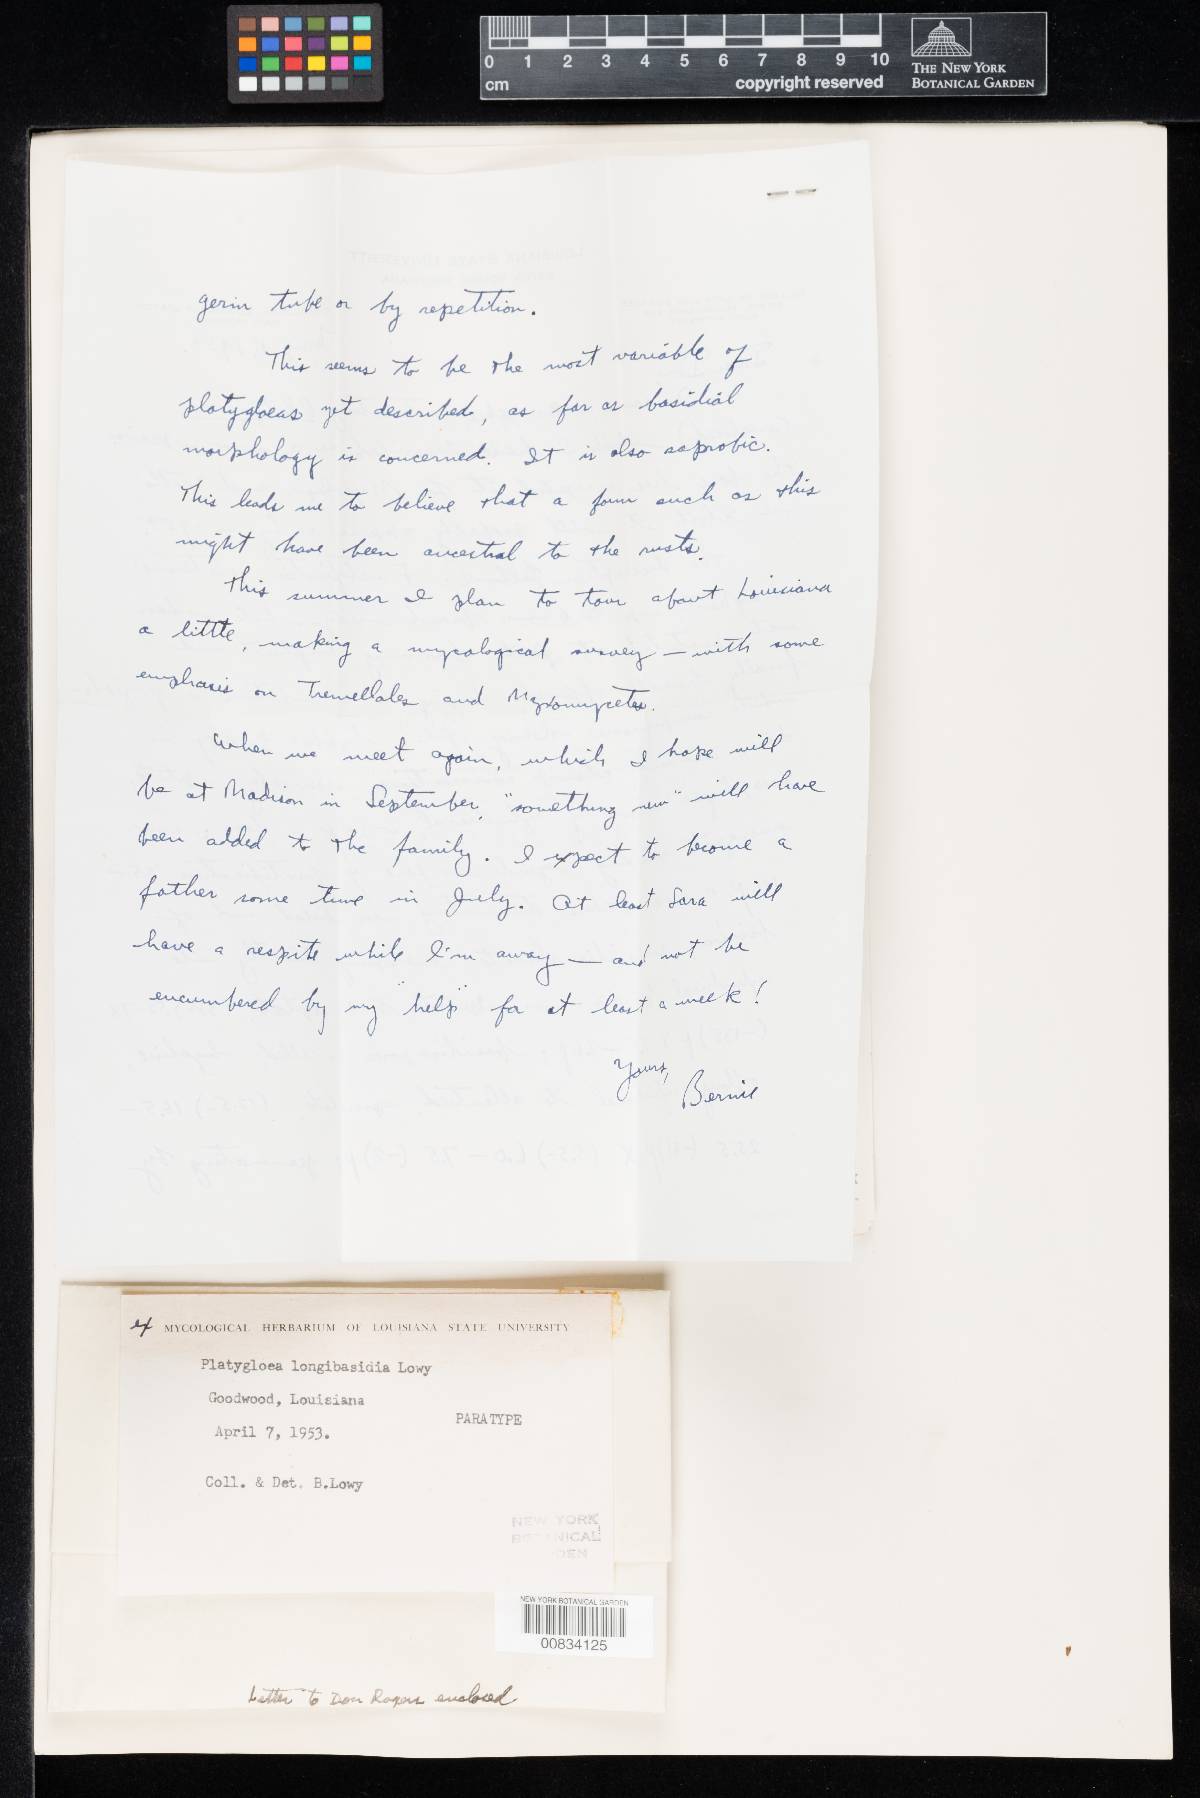 0 1 2 3 4 5 6 7 8 9 10
cm copyright reserved
THE NEW YORK
BOTANICAL GARDEN
germ tube or by repetition.
This seems to be the most variable of
platygloeas yet described, as far as basidial
morphology is concerned. It is also saprobic.
This leads me to believe that a form such as this
might have been ancestral to the rusts.
This summer I plan to tour about Louisiana
a little, making a mycological survey — with some
emphasis on Tremellales and Myxomycetes.
When we meet again, which I hope will
be at Madison in September, "something new" will have
been added to the family. I expect to become a
father some time in July. At least Sara will
have a respite while I'm away — and not be
encumbered by my "help" for at least a week!
Yours,
Bernie
ex MYCOLOGICAL HERBARIUM OF LOUISIANA STATE UNIVERSITY
Platygloea longibasidia Lowy
Goodwood, Louisiana
PARATYPE
April 7, 1953.
Coll. & Det. B.Lowy
NEW YORK
BOTANICAL
DEN
NEW YORK BOTANICAL GARDEN
00834125
Letter to Don Rogers enclosed